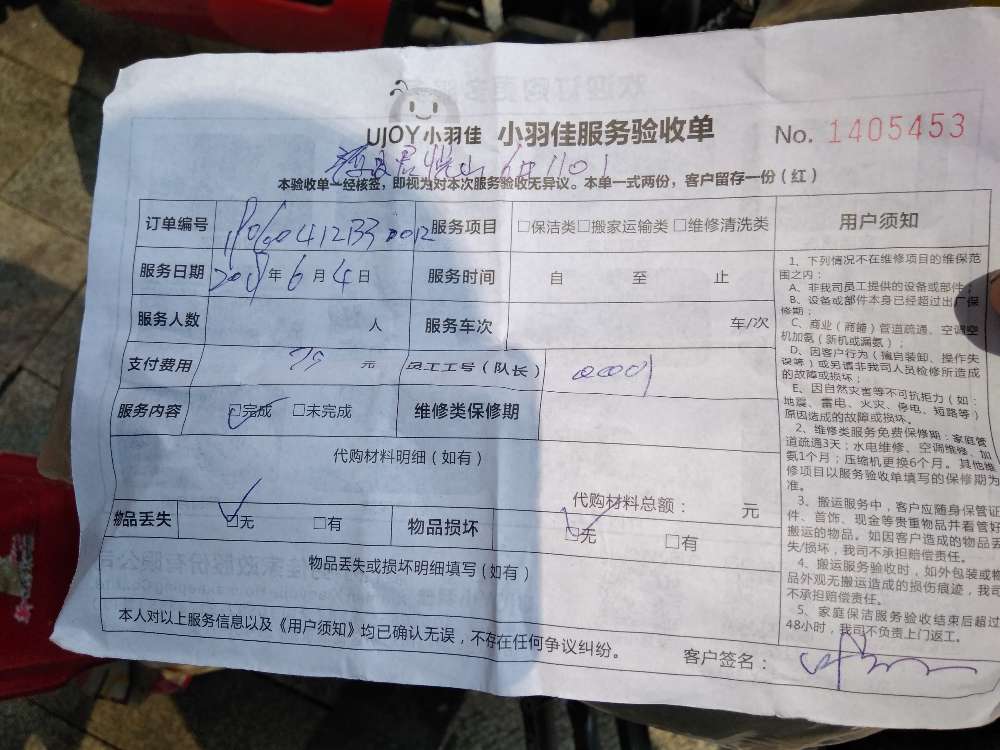 UJOY小羽佳 小羽佳服务验收单 No. 1405453
6# 1101
本验收单一经核签，即视为对本次服务验收无异议。本单一式两份，客户留存一份（红）
订单编号 服务项目 □保洁类□搬家运输类 □维修清洗类
服务日期 年 6 月 4 日 服务时间 自 至 止
服务人数 人 服务车次 车/次
支付费用 元 员工工号（队长）
服务内容 □完成 □未完成 维修类保修期
代购材料明细（如有）
代购材料总额： 元
物品丢失 □无 □有 物品损坏 □无 □有
物品丢失或损坏明细填写（如有）
本人对以上服务信息以及《用户须知》均已确认无误，不存在任何争议纠纷。
客户签名：
用户须知
1、下列情况不在维修项目的维保范
围之内：
A、非我司员工提供的设备或部件；
B、设备或部件本身已经超过出厂保
修期；
C、商业（商铺）管道疏通、空调空
机加氨（新机或漏氨）；
D、因客户行为（擅自装卸、操作失
误等）或另请非我司人员检修所造成
的故障或损坏；
E、因自然灾害等不可抗拒力（如：
地震、雷电、火灾、停电、短路等）
原因造成的故障或损坏。
2、维修类服务免费保修期：家庭管
道疏通3天；水电维修、空调维修、加
氨1个月；压缩机更换6个月。其他维
修项目以服务验收单填写的保修期为
准。
3、搬运服务中，客户应随身保管证
件、首饰、现金等贵重物品并看管好
搬运的物品。如因客户造成的物品丢
失/损坏，我司不承担赔偿责任。
4、搬运服务验收时，如外包装或物
品外观无搬运造成的损伤痕迹，我司
不承担赔偿责任。
5、家庭保洁服务验收结束后超过
48小时，我司不负责上门返工。